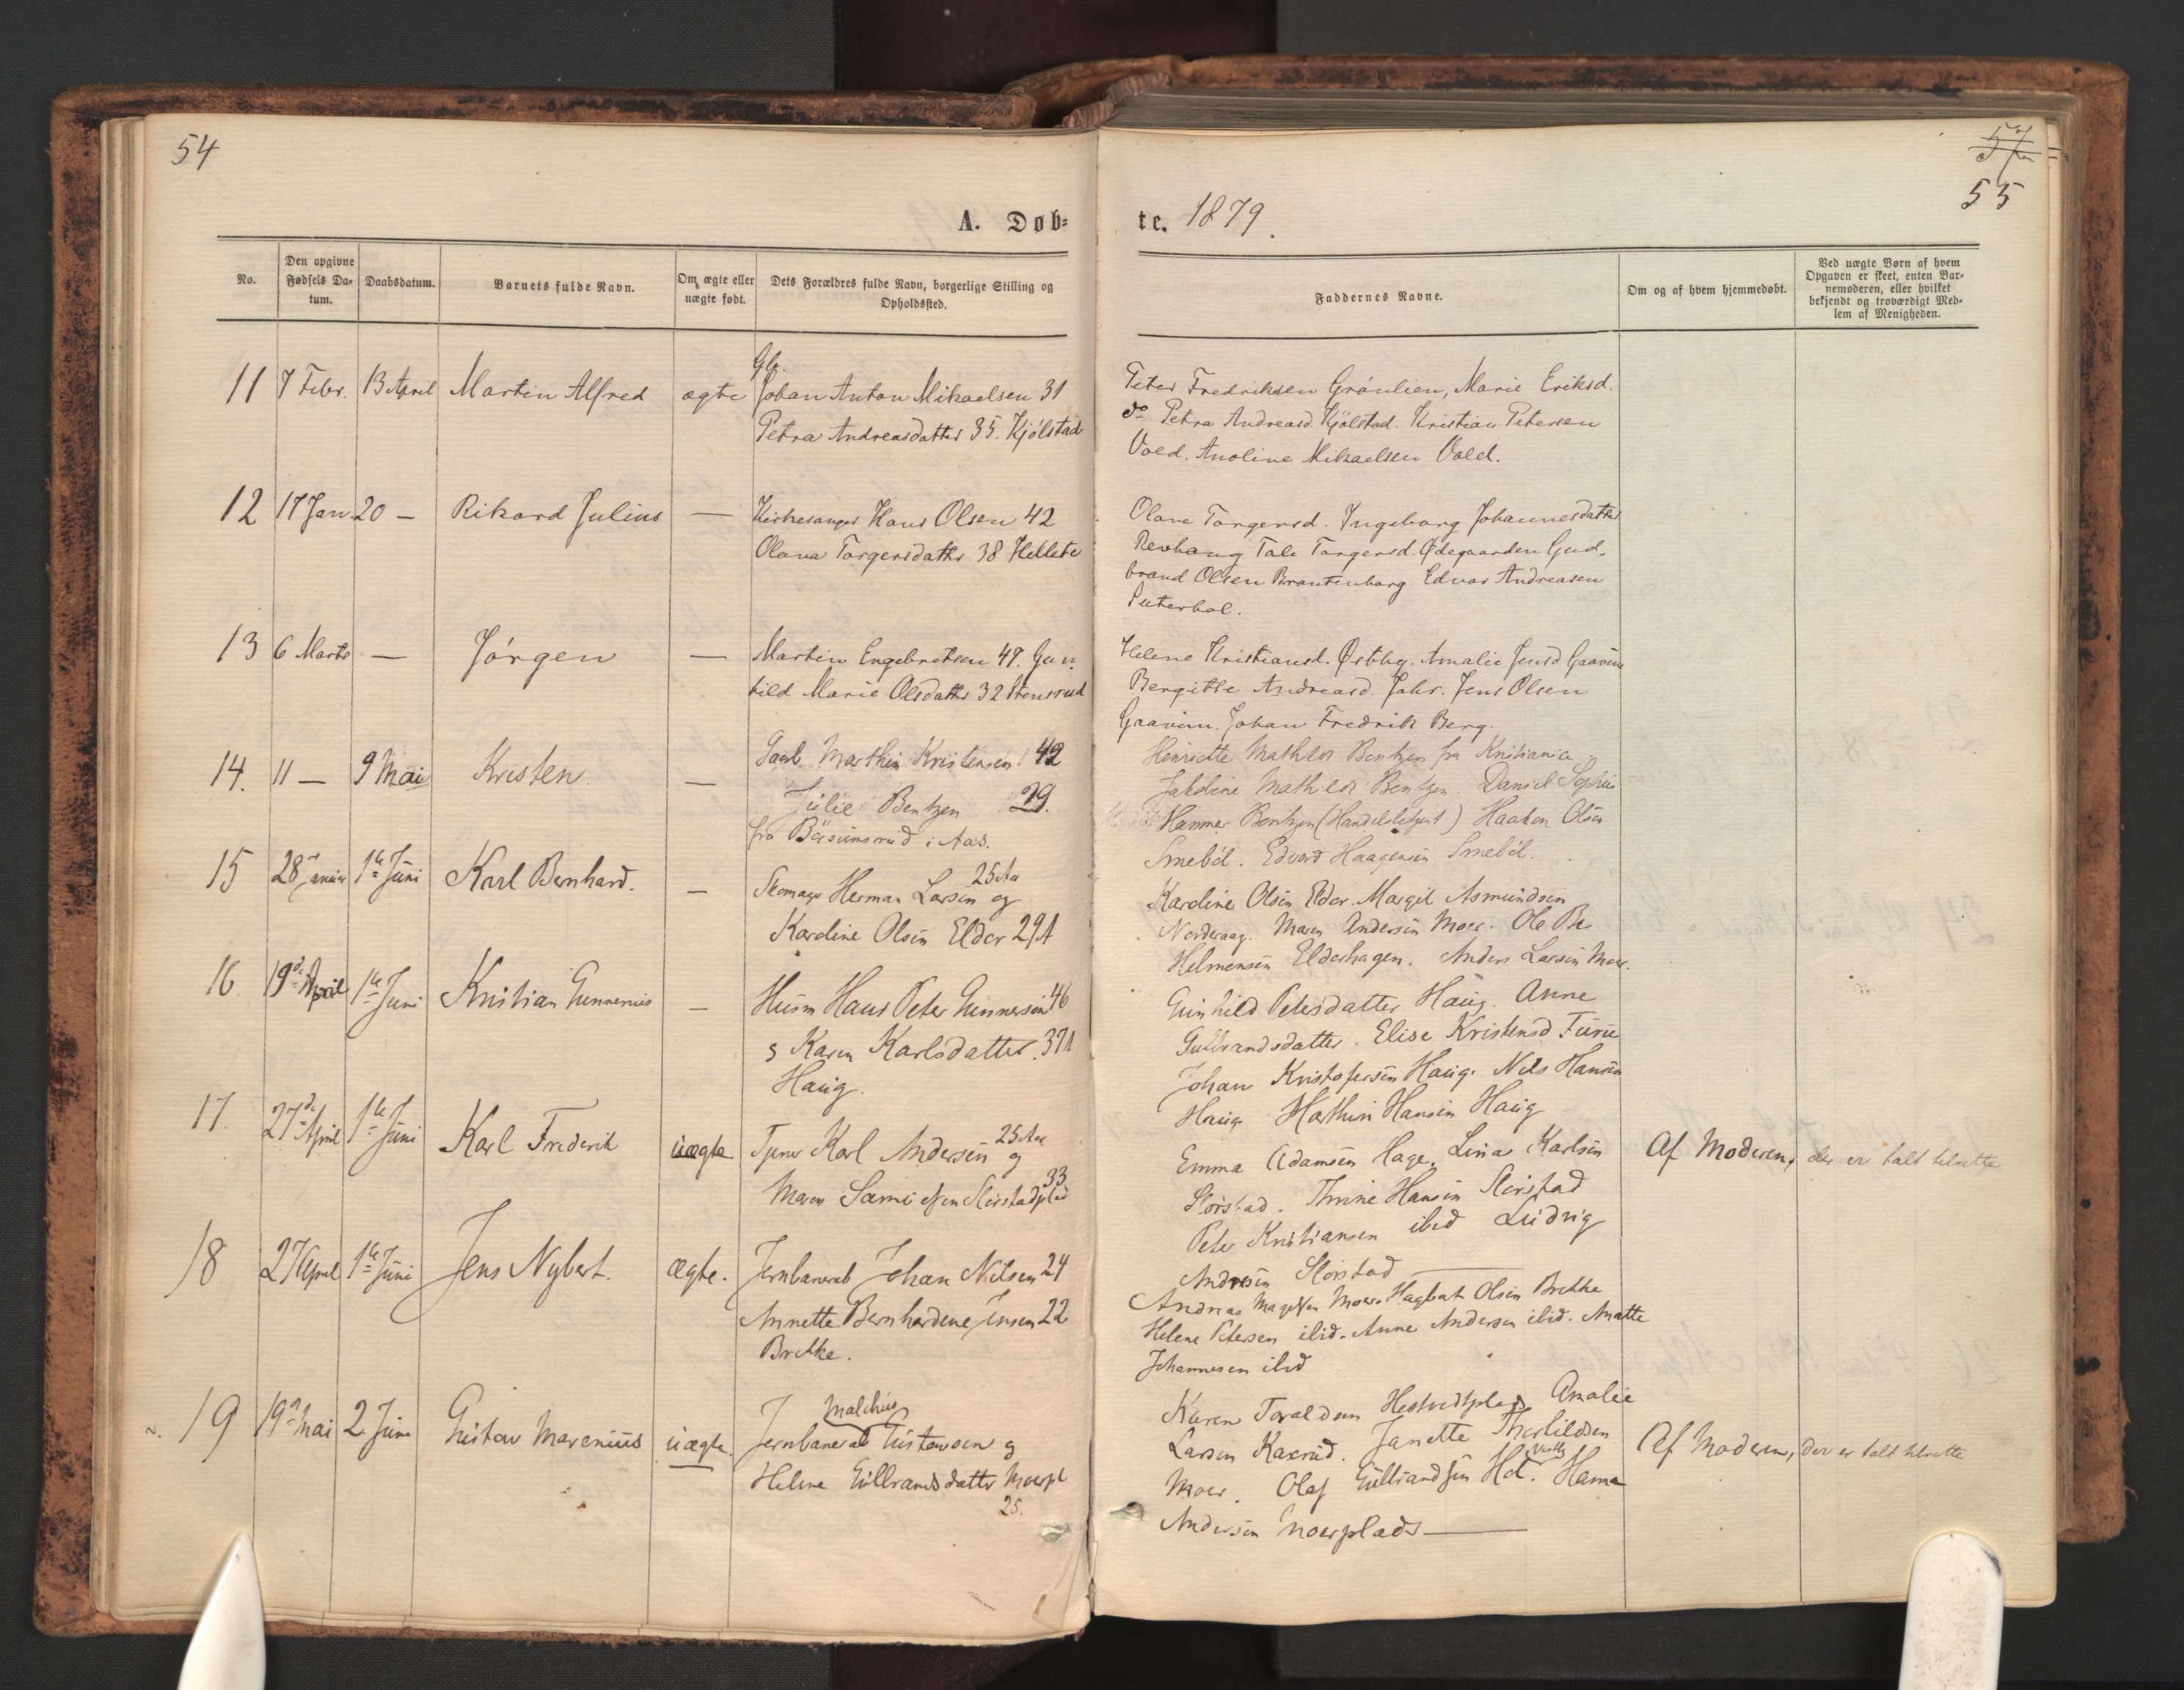 54
57
55
A. Døb-
te. 1879.
No.
Den opgivne Fødsels Da-
tum.
Daabsdatum.
Barnets fulde Navn.
Om ægte eller
uægte født.
Dets Forældres fulde Navn, borgerlige Stilling og
Opholdssted.
Faddernes Navne.
Om og af hvem hjemmedøbt.
Ved uægte Børn af hvem
Opgaven er skeet, enten Bar-
nemoderen, eller hvilket
bekjendt og troværdigt Med-
lem af Menigheden.
11 7 Febr. 13 April Martin Alfred ægte
Johan Anton Mikaelsen 31
Petra Andreasdatter 35. Kjølstad
Peter Fredriksen Grønlien, Marie Eriksd.
do Petra Andreasd. Kjølstad. Kristian Petersen
Vold. Anoline Mikaelsen Vold.
12 17 Jan. 20 — Rikard Julius —
Kirkesanger Hans Olsen 42
Olava Torgersdatter 38
Olave Torgersd. Ingeborg Johannesdatter
Revhaug Tale Torgersd. Ødegaarden Gud-
brand Olsen Edvar Andreasen
13 6 Marts — Jørgen —
Martin Engebretsen 47. Gun-
hild Marie Olsdatter 32 Stensrud
Helene Kristiansd. Østby. Amalie Jensd
Bergitte Andreasd. Jens Olsen
Johan Fredrik Berg.
14. 11 — 9 Mai Kristen —
Marthin Kristensen 42
Julie Bentzen 29.
fra i Aas.
Henriette Mathilde Bentzen fra Kristiania
Jakobine Mathilde Bentzen. Daniel Sophus
Hammer Bentzen Haaken Olsen
Smebøl. Edvard Haagensen Smebøl.
15 28 1ste Juni Karl Bernhard. —
Skomager Herman Larsen 25 Aar og
Karoline Olsen Elder 29 A
Karoline Olsen Elder. Margit Asmundsen
Norderaag. Maren Andersen Moer. Ole
Helmensen Elderhagen. Anders Larsen Moer.
16 19de April 1ste Juni Kristian Gunnerius —
Husm Hans Peter Gunnersen 46
Karen Karlsdatter. 37 A
Haug.
Gunhild Petersdatter Haug. Anne
Gulbrandsdatter. Elise Kristensd Furu
Johan Kristofersen Haug. Nils Hansen
Haug. Mathin Hansen Haug
17. 27de April 1ste Juni Karl Frederik uægte
Tjener Karl Andersen 25 Aar og
Maren 33
Emma Adamsen Hage. Lina Karlsen
Slørstad. Thrine Hansen Slørstad
Peter Kristiansen ibid Ludvig
Andresen Slørstad —
Af Moderen, der er talt tilrette
18 27 April 1ste Juni Jens Nybert. ægte.
Jernbanearb Johan Nilsen 24
Annette Bernhardene Jensen 22
Brekke.
Andreas Moer. Hagbart Olsen Brekke
Helene Petersen ibid. Anne Andersen ibid. Anette
Johannesen ibid
19 19 Mai 2. Juni Gustav Marenius uægte.
Malchus
Jernbanearb Gustavsen og
Helene Gulbrandsdatter Moerpl
25.
Karen Toraldsen Amalie
Larsen Kaxrud. Janette
Moer. Olaf Gulbrandsen Hanna
Andersen Moerplads —
Af Moderen, der er talt tilrette